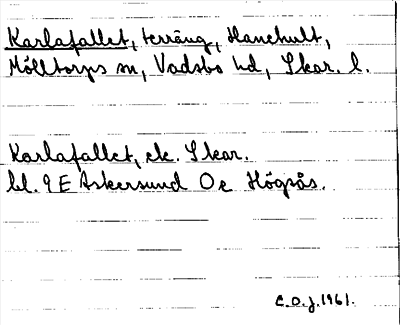 Karlafallet, terräng, Hanehult,
Mölltorps sn, Vadsbo hd, Skar. l.
Karlafallet, ek. Skar.
bl. 9 E Askersund O e Högsås.
C.O.J. 1961.